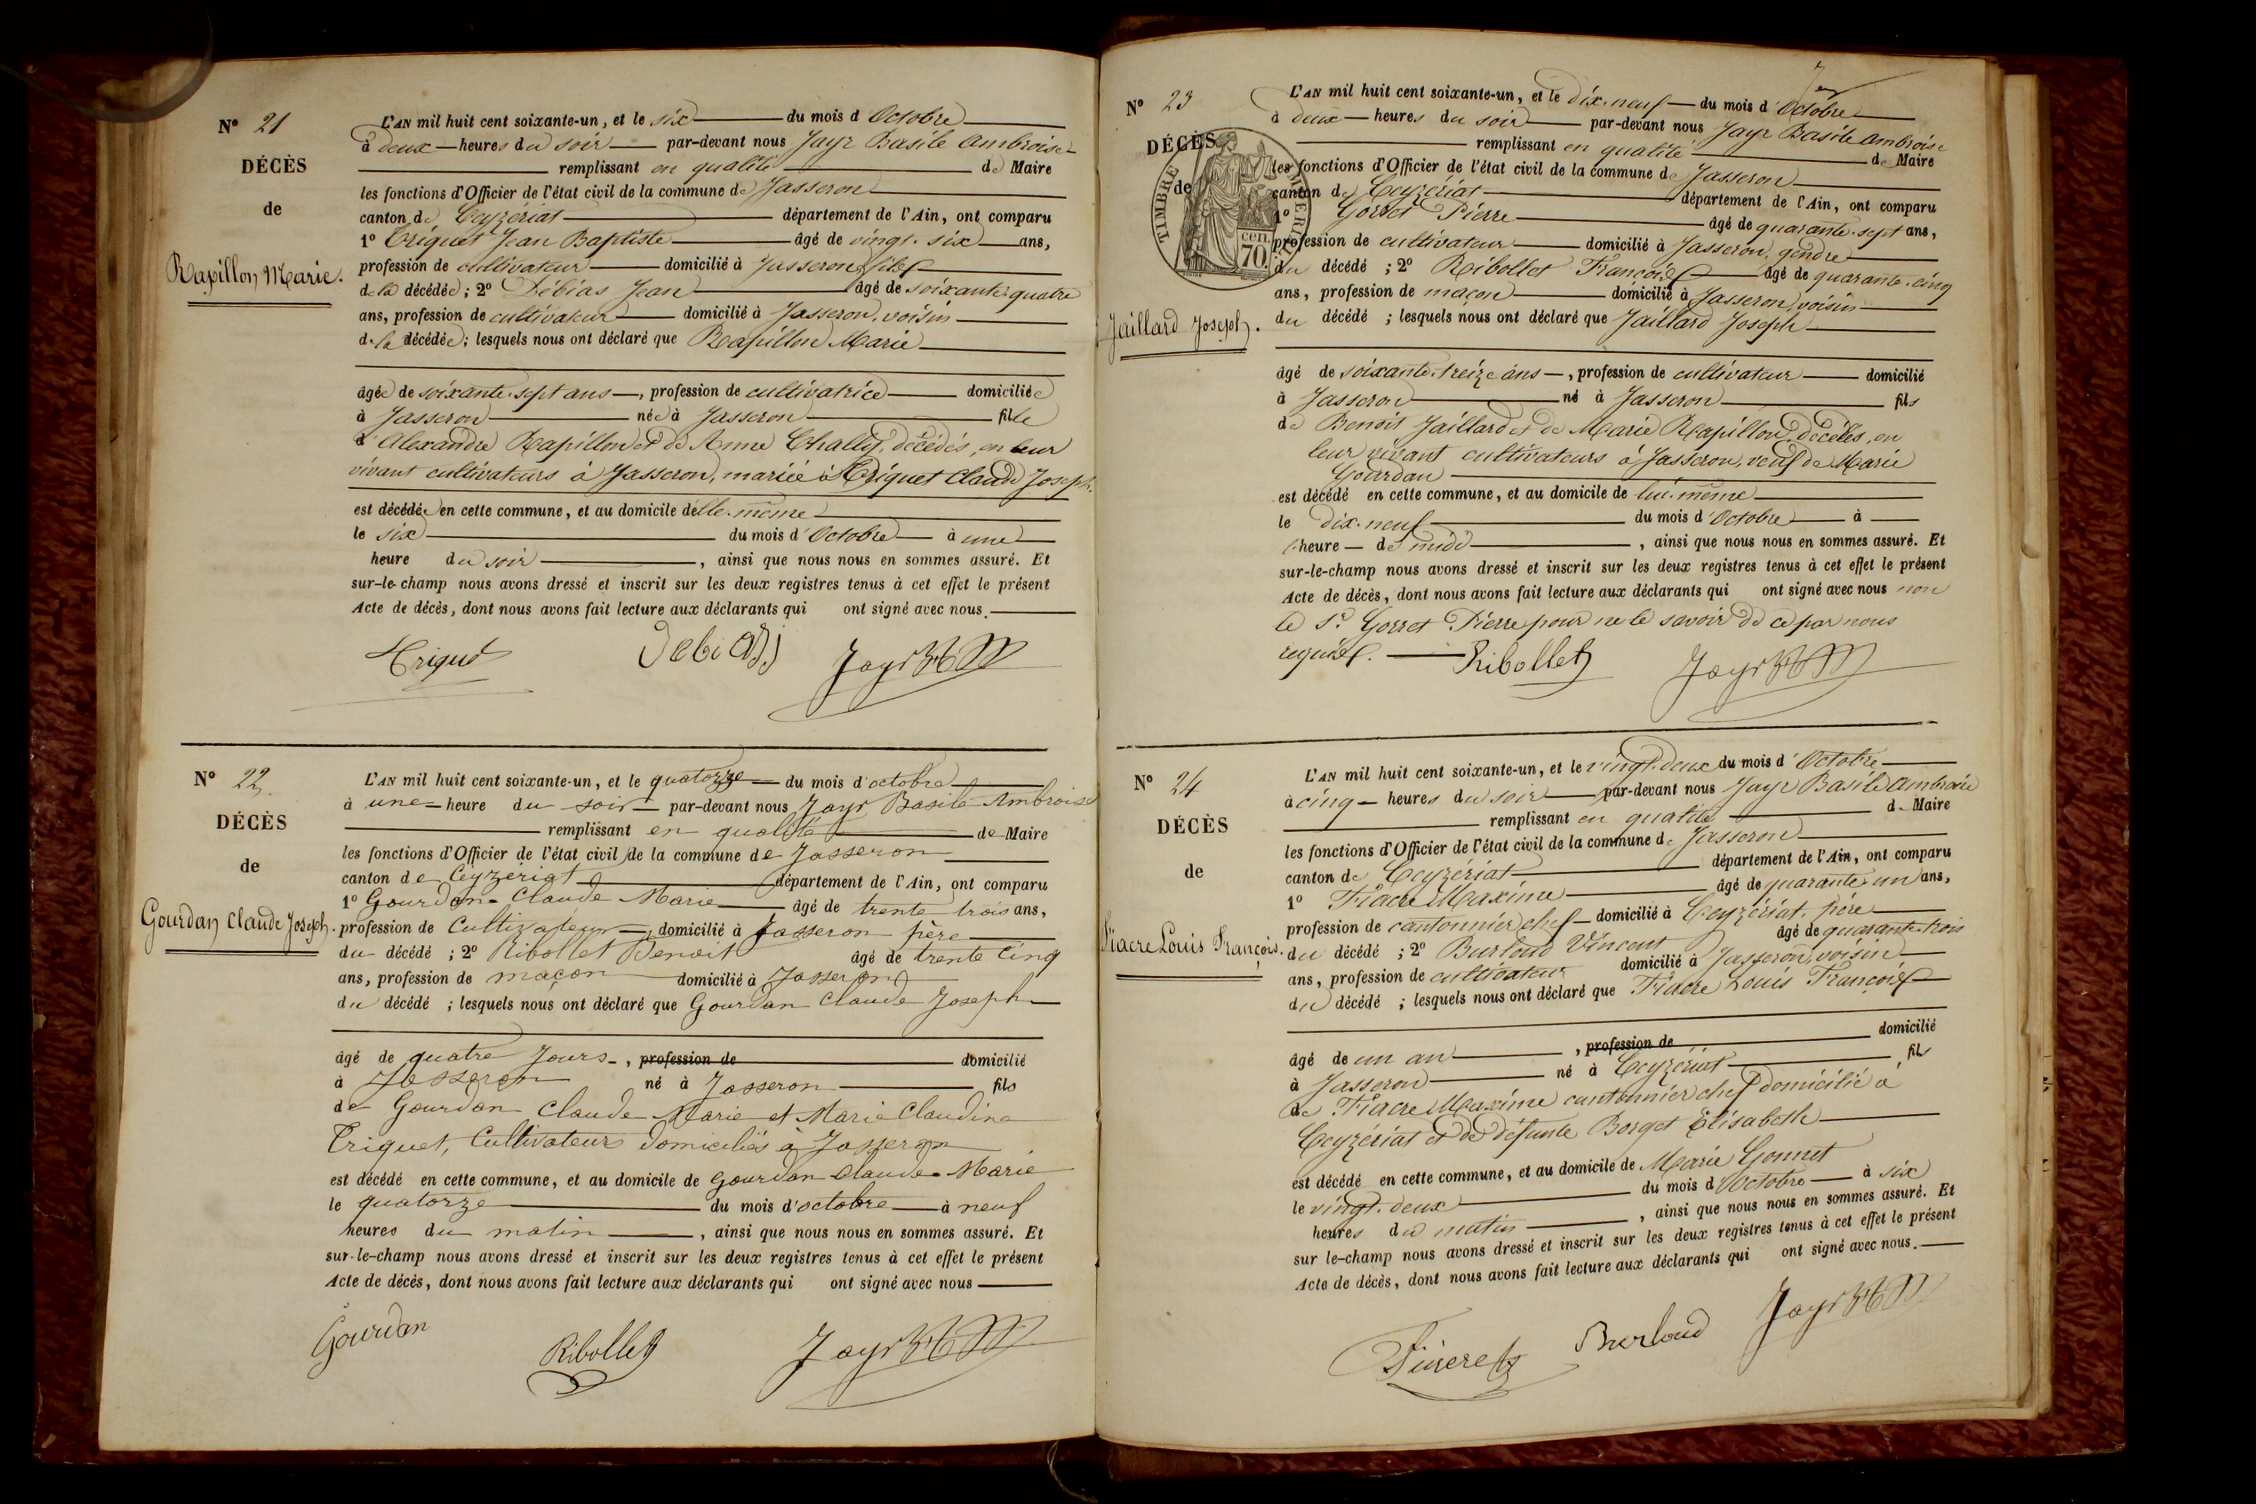 N° 21
DÉCÈS
de
Rapillon Marie.
L'AN mil huit cent soixante-un, et le six du mois d'Octobre
à deux heures du soir par-devant nous Jayr Basile Ambroise
remplissant en qualité de Maire
les fonctions d'Officier de l'état civil de la commune de Jasseron
canton de Ceyzériat département de l'Ain, ont comparu
1° Triquet Jean Baptiste âgé de vingt-six ans,
profession de cultivateur domicilié à Jasseron, fils
de la décédée ; 2° Débias Jean âgé de soixante-quatre
ans, profession de cultivateur domicilié à Jasseron, voisin
de la décédée ; lesquels nous ont déclaré que Rapillon Marie
âgée de soixante-sept ans, profession de cultivatrice domiciliée
à Jasseron née à Jasseron fille
d'Alexandre Rapillon et de Anne Challey, décédés, en leur
vivant cultivateurs à Jasseron, mariée à Triquet Claude Joseph.
est décédée en cette commune, et au domicile d'elle-même
le six du mois d'Octobre à une
heure du soir, ainsi que nous nous en sommes assuré. Et
sur-le-champ nous avons dressé et inscrit sur les deux registres tenus à cet effet le présent
Acte de décès, dont nous avons fait lecture aux déclarants qui ont signé avec nous.
Triquet Debias Jayr
N° 22.
DÉCÈS
de
Gourdan Claude Joseph.
L'AN mil huit cent soixante-un, et le quatorze du mois d'octobre
à une heure du soir par-devant nous Jayr Basile Ambroise
remplissant en qualité de Maire
les fonctions d'Officier de l'état civil de la commune de Jasseron
canton de Ceyzériat département de l'Ain, ont comparu
1° Gourdan Claude Marie âgé de trente trois ans,
profession de Cultivateur, domicilié à Jasseron père
du décédé ; 2° Ribollet Benoit âgé de trente Cinq
ans, profession de maçon domicilié à Jasseron
du décédé ; lesquels nous ont déclaré que Gourdan Claude Joseph
âgé de quatre Jours, profession de domicilié
à Jasseron né à Jasseron fils
de Gourdan Claude Marie et Marie Claudine
Triquet, Cultivateurs domiciliés à Jasseron
est décédé en cette commune, et au domicile de Gourdan Claude Marie
le quatorze du mois d'octobre à neuf
heures du matin, ainsi que nous nous en sommes assuré. Et
sur-le-champ nous avons dressé et inscrit sur les deux registres tenus à cet effet le présent
Acte de décès, dont nous avons fait lecture aux déclarants qui ont signé avec nous
Gourdan Ribollet Jayr
N° 23
DÉCÈS
de
TIMBRE IMPÉRIAL
70 cen.
Jaillard Joseph.
L'AN mil huit cent soixante-un, et le dix-neuf du mois d'Octobre
à deux heures du soir par-devant nous Jayr Basile Ambroise
remplissant en qualité de Maire
les fonctions d'Officier de l'état civil de la commune de Jasseron
canton de Ceyzériat département de l'Ain, ont comparu
1° Gorret Pierre âgé de quarante-sept ans,
profession de cultivateur domicilié à Jasseron, gendre
du décédé ; 2° Ribollet François âgé de quarante-cinq
ans, profession de maçon domicilié à Jasseron, voisin
du décédé ; lesquels nous ont déclaré que Jaillard Joseph
âgé de soixante-treize ans, profession de cultivateur domicilié
à Jasseron né à Jasseron fils
de Benoit Jaillard et de Marie Rapillon, décédés, en
leur vivant cultivateurs à Jasseron, veuf de Marie
Gourdan
est décédé en cette commune, et au domicile de lui-même
le dix-neuf du mois d'Octobre à
l'heure de midi, ainsi que nous nous en sommes assuré. Et
sur-le-champ nous avons dressé et inscrit sur les deux registres tenus à cet effet le présent
Acte de décès, dont nous avons fait lecture aux déclarants qui ont signé avec nous non
le Sr. Gorret Pierre pour ne le savoir de ce par nous
requis.
Ribollet Jayr
N° 24
DÉCÈS
de
Fiacre Louis François.
L'AN mil huit cent soixante-un, et le vingt-deux du mois d'Octobre
à cinq heures du soir par-devant nous Jayr Basile Ambroise
remplissant en qualité de Maire
les fonctions d'Officier de l'état civil de la commune de Jasseron
canton de Ceyzériat département de l'Ain, ont comparu
1° Fiacre Maxime âgé de quarante-un ans,
profession de cantonnier chef domicilié à Ceyzériat, père
du décédé ; 2° Burloud Vincent âgé de quarante-trois
ans, profession de cultivateur domicilié à Jasseron, voisin
du décédé ; lesquels nous ont déclaré que Fiacre Louis François
âgé de un an, profession de domicilié
à Jasseron né à Ceyzériat fils
de Fiacre Maxime cantonnier chef domicilié à
Ceyzériat et de défunte Borget Élisabeth
est décédé en cette commune, et au domicile de Marie Gonnet
le vingt-deux du mois d'Octobre à six
heures du matin, ainsi que nous nous en sommes assuré. Et
sur le-champ nous avons dressé et inscrit sur les deux registres tenus à cet effet le présent
Acte de décès, dont nous avons fait lecture aux déclarants qui ont signé avec nous.
Burloud Jayr